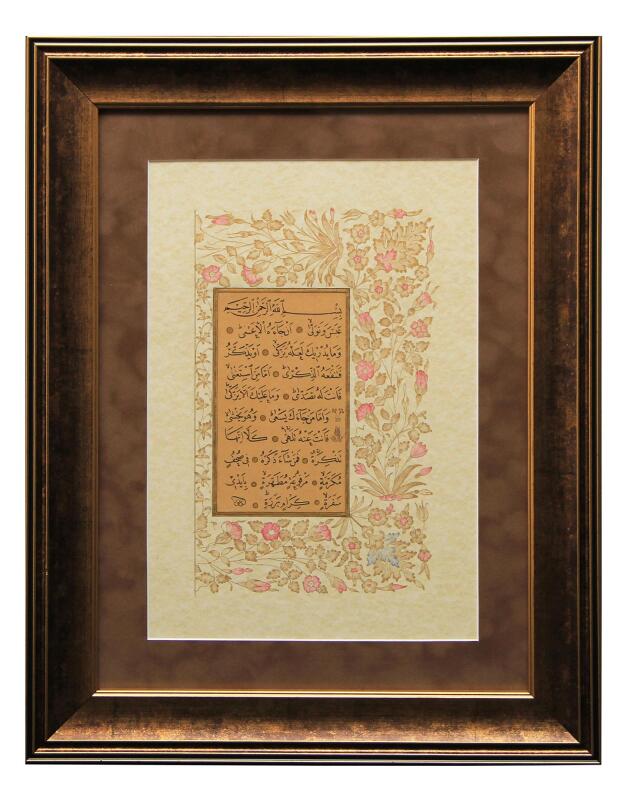 بِسْمِ اللهِ الرَّحْمٰنِ الرَّحِيمِ
عَبَسَ وَتَوَلّٰى اَنْ جَاءَهُ الْاَعْمٰى
وَمَا يُدْرِيكَ لَعَلَّهُ يَزَّكّٰى اَوْ يَذَّكَّرُ
فَتَنْفَعَهُ الذِّكْرٰى اَمَّا مَنِ اسْتَغْنٰى
فَاَنْتَ لَهُ تَصَدّٰى وَمَا عَلَيْكَ اَلَّا يَزَّكّٰى
وَاَمَّا مَنْ جَاءَكَ يَسْعٰى وَهُوَ يَخْشٰى
فَاَنْتَ عَنْهُ تَلَهّٰى كَلَّا اِنَّهَا
تَذْكِرَةٌ فَمَنْ شَاءَ ذَكَرَهُ فِي صُحُفٍ
مُكَرَّمَةٍ مَرْفُوعَةٍ مُطَهَّرَةٍ بِاَيْدِي
سَفَرَةٍ كِرَامٍ بَرَرَةٍ